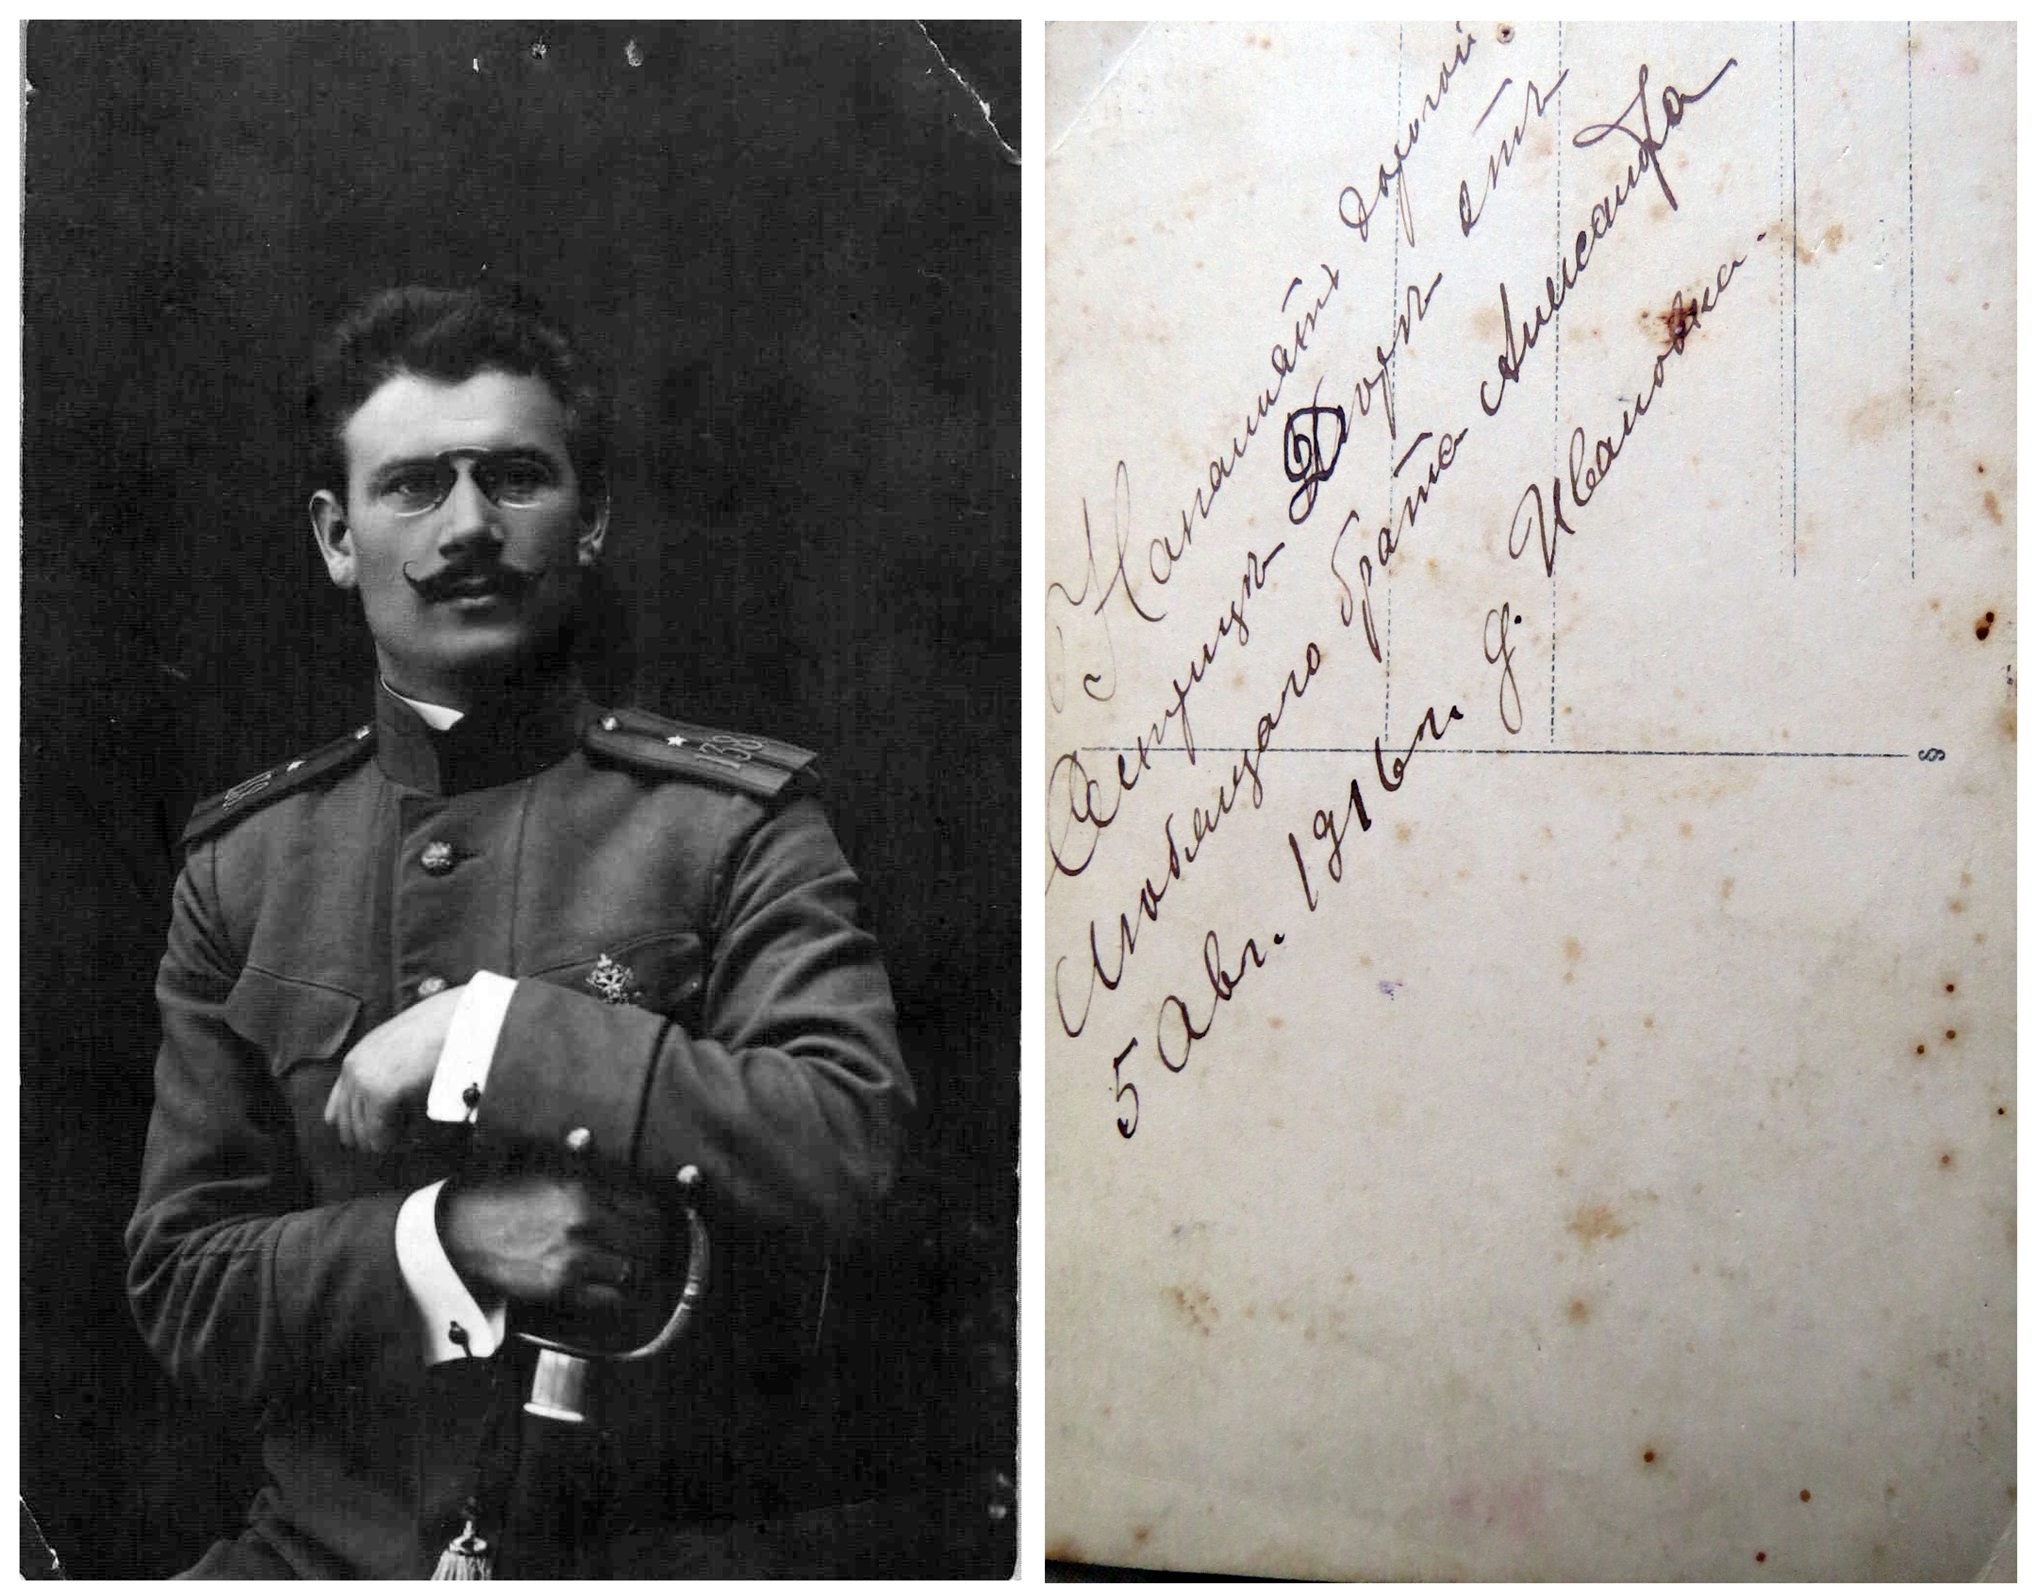 На память дорогой
Сестрицѣ Дорѣ отъ
Любящаго брата Александра
5 Авг. 1916 г. Д. Ивановка.